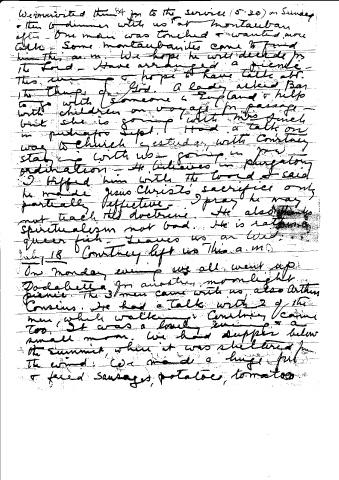 We invited them for to the service (5-20) on Sunday
& then to dinner with us at Montauban
after. One man was touched & wanted more
talk. Some Montaubanites came to find
him this a.m. We hope he will decide for
the Lord. Have arranged a picnic
this evening & hope to have talk abt.
the things of God. A lady asked Bar
to go with someone to England & help
with children on way aft for passage
but she is going with Mrs
in September. Had a talk on
way to church yesterday with Courtney
staying with us going in for
ordination. He believes in purgatory
I tiffed him with the Word & said
he made Jesus Christ's sacrifice only
partially effective. I pray he may
not teach the doctrine. He also thinks
Spiritualism not bad. He is rather
queer fish. Leaves us on Wed.
July 18 Courtney left us this a.m.
On Monday evening we all went up
Dodabetta for another moonlight
picnic. The 3 men came with us also Arthur
Cousins. He had a talk with 2 of the
men while walking. Courtney came
too. It was a lovely evening & a
small moon. We had supper below
the summit, where it was sheltered from
the wind. We made a huge fire
& fried sausages, potatoes, tomatoes